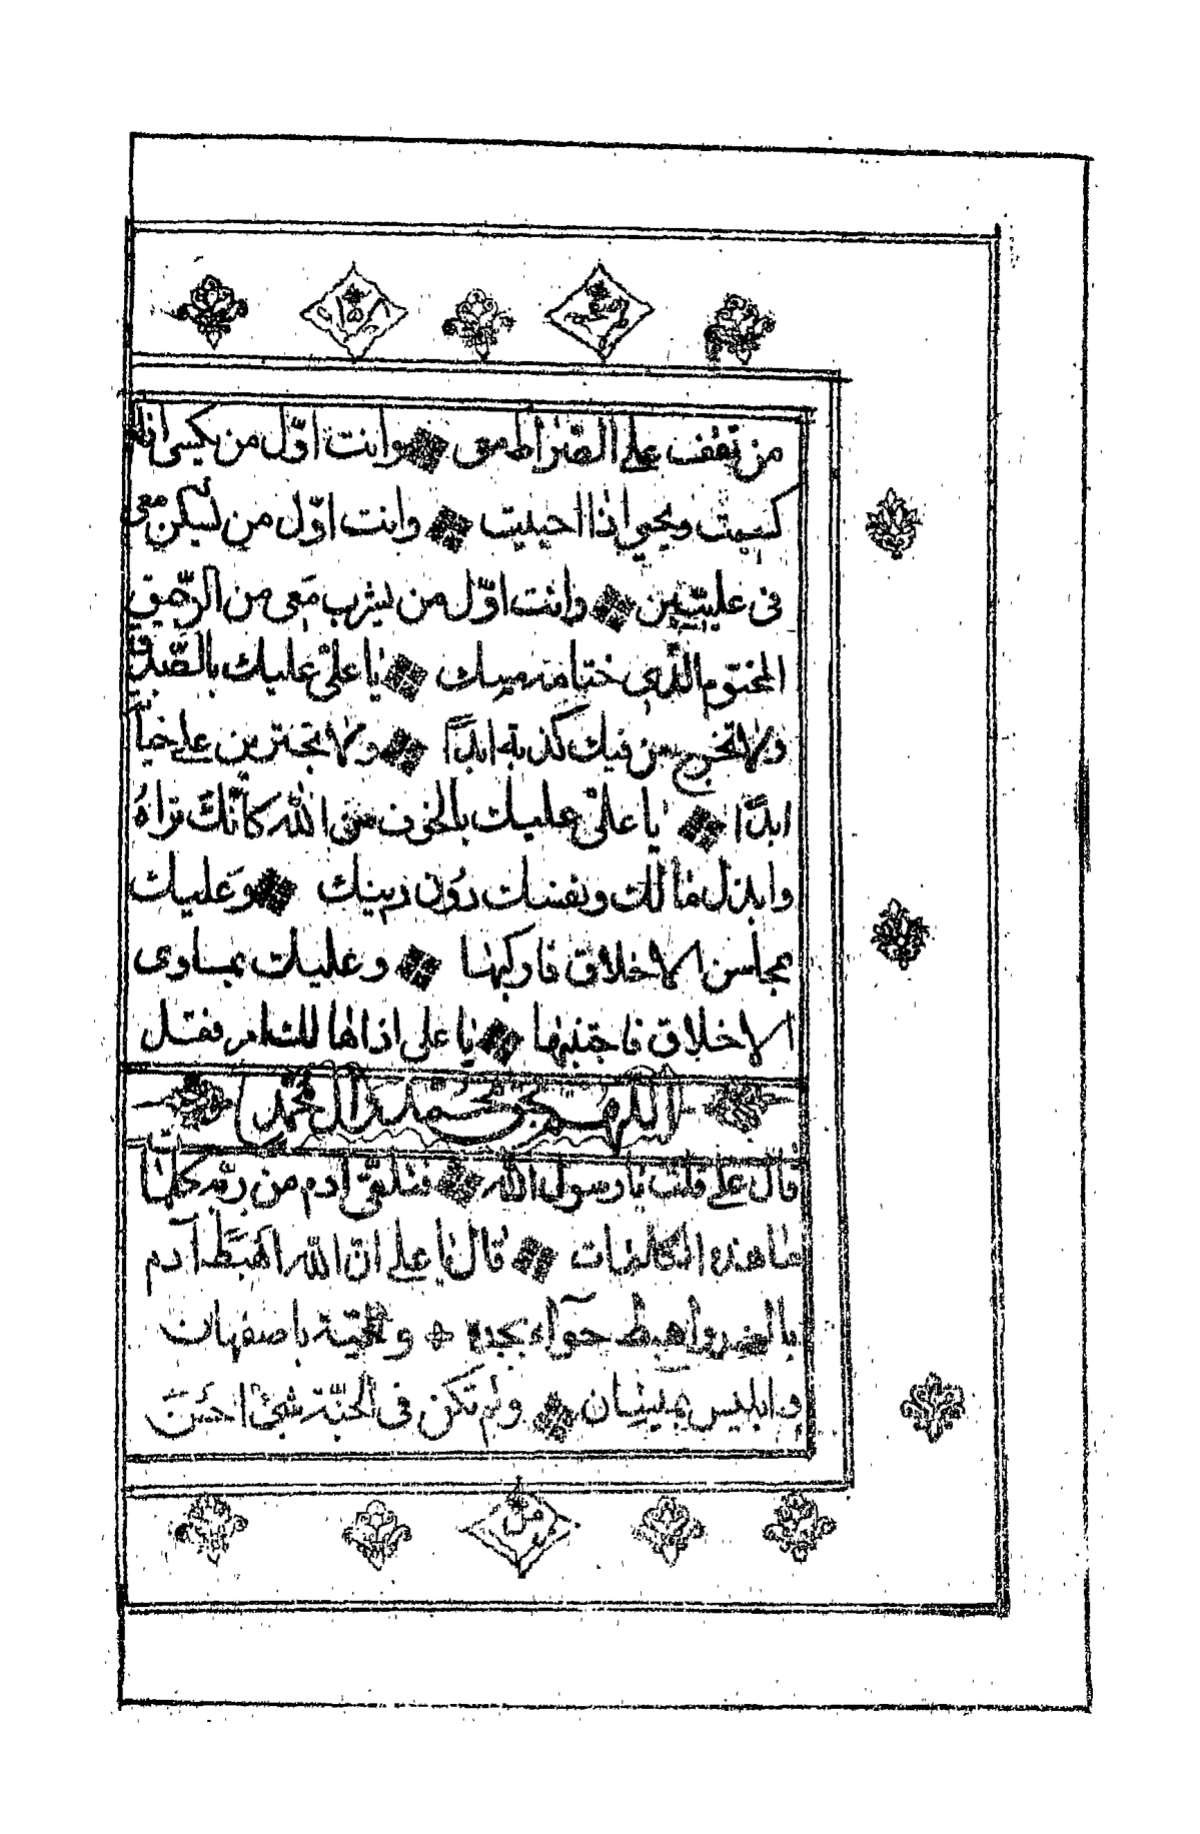 من تقف على الصّراط معى وانت اوّل من يكسى اذا
كسيت ويحيى اذا احييت وانت اوّل من يسكن معى
فى علّيّين وانت اوّل من يشرب مَعى من الرّحيق
المختوم الّذى ختامه مسك يا علىّ عليك بالصّدق
ولا تخرج من فيك كذبة ابدًا ولا تجترين على خيانة
ابدًا يا علىّ عليك بالخوف من الله كأنّك تراهُ
وابذل مالك ونفسك دُون دينك وعَليك
بمحاسن الاخلاق فاركبها وعليك بمساوى
الاخلاق فاجتنبها يا على اذا فقل
اللّهُمّ بحقّ محمّد وآل محمّد
قال على قلت يا رسول الله فتلقّى آدم من ربّه كلمات
ما هذه الكلمات قال يا على انّ الله اهبَطَ آدم
بالهند واهبط حوّاء بجدة والحيّة باصفهان
وابليس بميسان ولم تكن فى الجنّة شئ احسَنَ